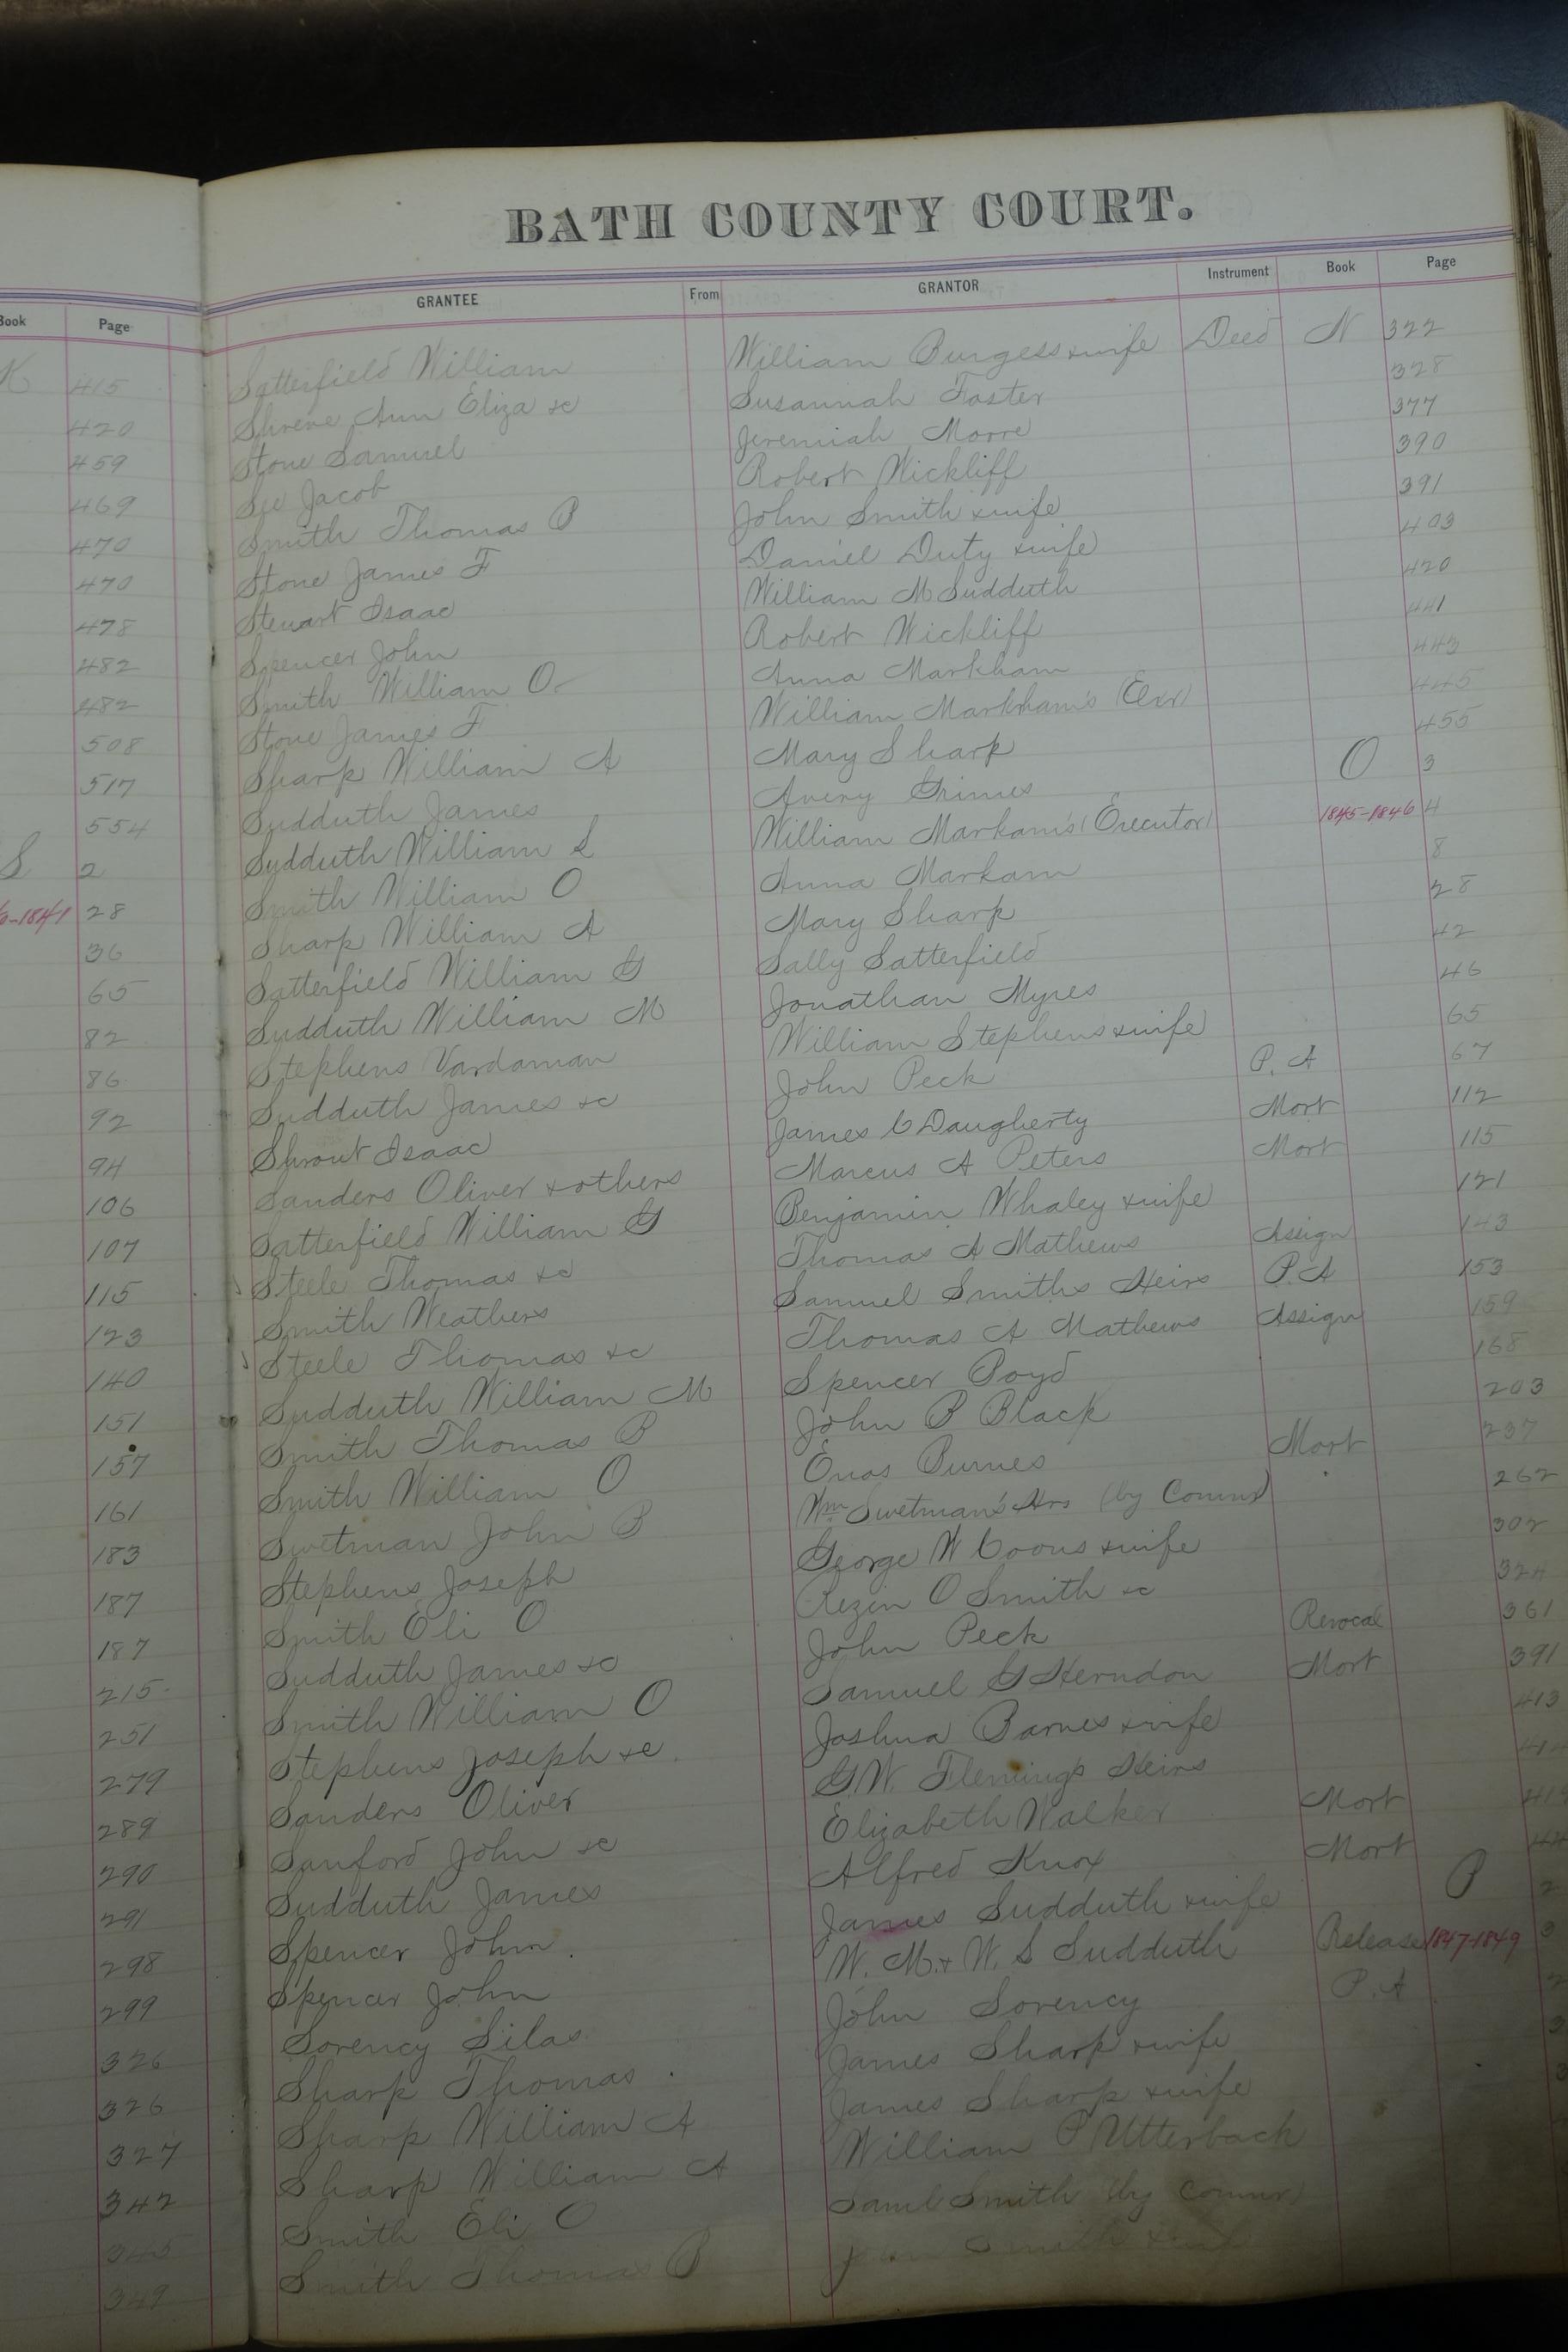 BATH COUNTY COURT.
Book Page GRANTEE From GRANTOR Instrument Book Page
K 415 Satterfield William William Burgess & wife Deed N 322
420 Shreve Ann Eliza &c Susannah Foster 328
459 Stone Samuel Jeremiah Moore 377
469 See Jacob Robert Wickliff 390
470 Smith Thomas B John Smith & wife 391
470 Stone James F Daniel Duty & wife 403
478 Stewart Isaac William M Sudduth 420
482 Spencer John Robert Wickliff 441
482 Smith William O Anna Markham 443
508 Stone James F William Markham's (Exr) 445
517 Sharp William A Mary Sharp 455
554 Sudduth James Avery Grimes O 3
S 2 Sudduth William L William Markam's (Executor) 1845-1846 4
-1841 28 Smith William O Anna Markam 8
36 Sharp William A Mary Sharp 28
65 Satterfield William G Sally Satterfield 42
82 Sudduth William M Jonathan Myres 46
86 Stephens Vardaman William Stephens & wife 65
92 Sudduth James &c John Peck P. A 67
94 Shrout Isaac James C Daugherty Mort 112
106 Sanders Oliver & others Marcus A Peters Mort 115
107 Satterfield William G Benjamin Whaley & wife 121
115 Steele Thomas &c Thomas A Mathews Assign 143
123 Smith Weathers Samuel Smiths Heirs P. A 153
140 Steele Thomas &c Thomas A Mathews Assign 159
151 Sudduth William M Spencer Boyd 168
157 Smith Thomas B John B Black 203
161 Smith William O Enos Burnes Mort 237
183 Swetman John B Wm Swetman's Hrs (by Commr) 262
187 Stephens Joseph George W Coons & wife 302
187 Smith Eli O Rezin O Smith &c 324
215 Sudduth James &c John Peck Revocal 361
251 Smith William O Samuel G Herndon Mort 391
279 Stephens Joseph &c Joshua Barnes & wife 413
289 Sanders Oliver G. W. Flemings Heirs
290 Sanford John &c Elizabeth Walker Mort 419
291 Sudduth James Alfred Knox Mort
298 Spencer John James Sudduth & wife P 2
299 Spencer John W. M. & W. S Sudduth Release 1847-1849 3
326 Sorency Silas John Sorency P. A
326 Sharp Thomas James Sharp & wife
327 Sharp William A James Sharp & wife
342 Sharp William A William P Utterback
345 Smith Eli O Saml Smith (by Commr)
349 Smith Thomas B John Smith & wife